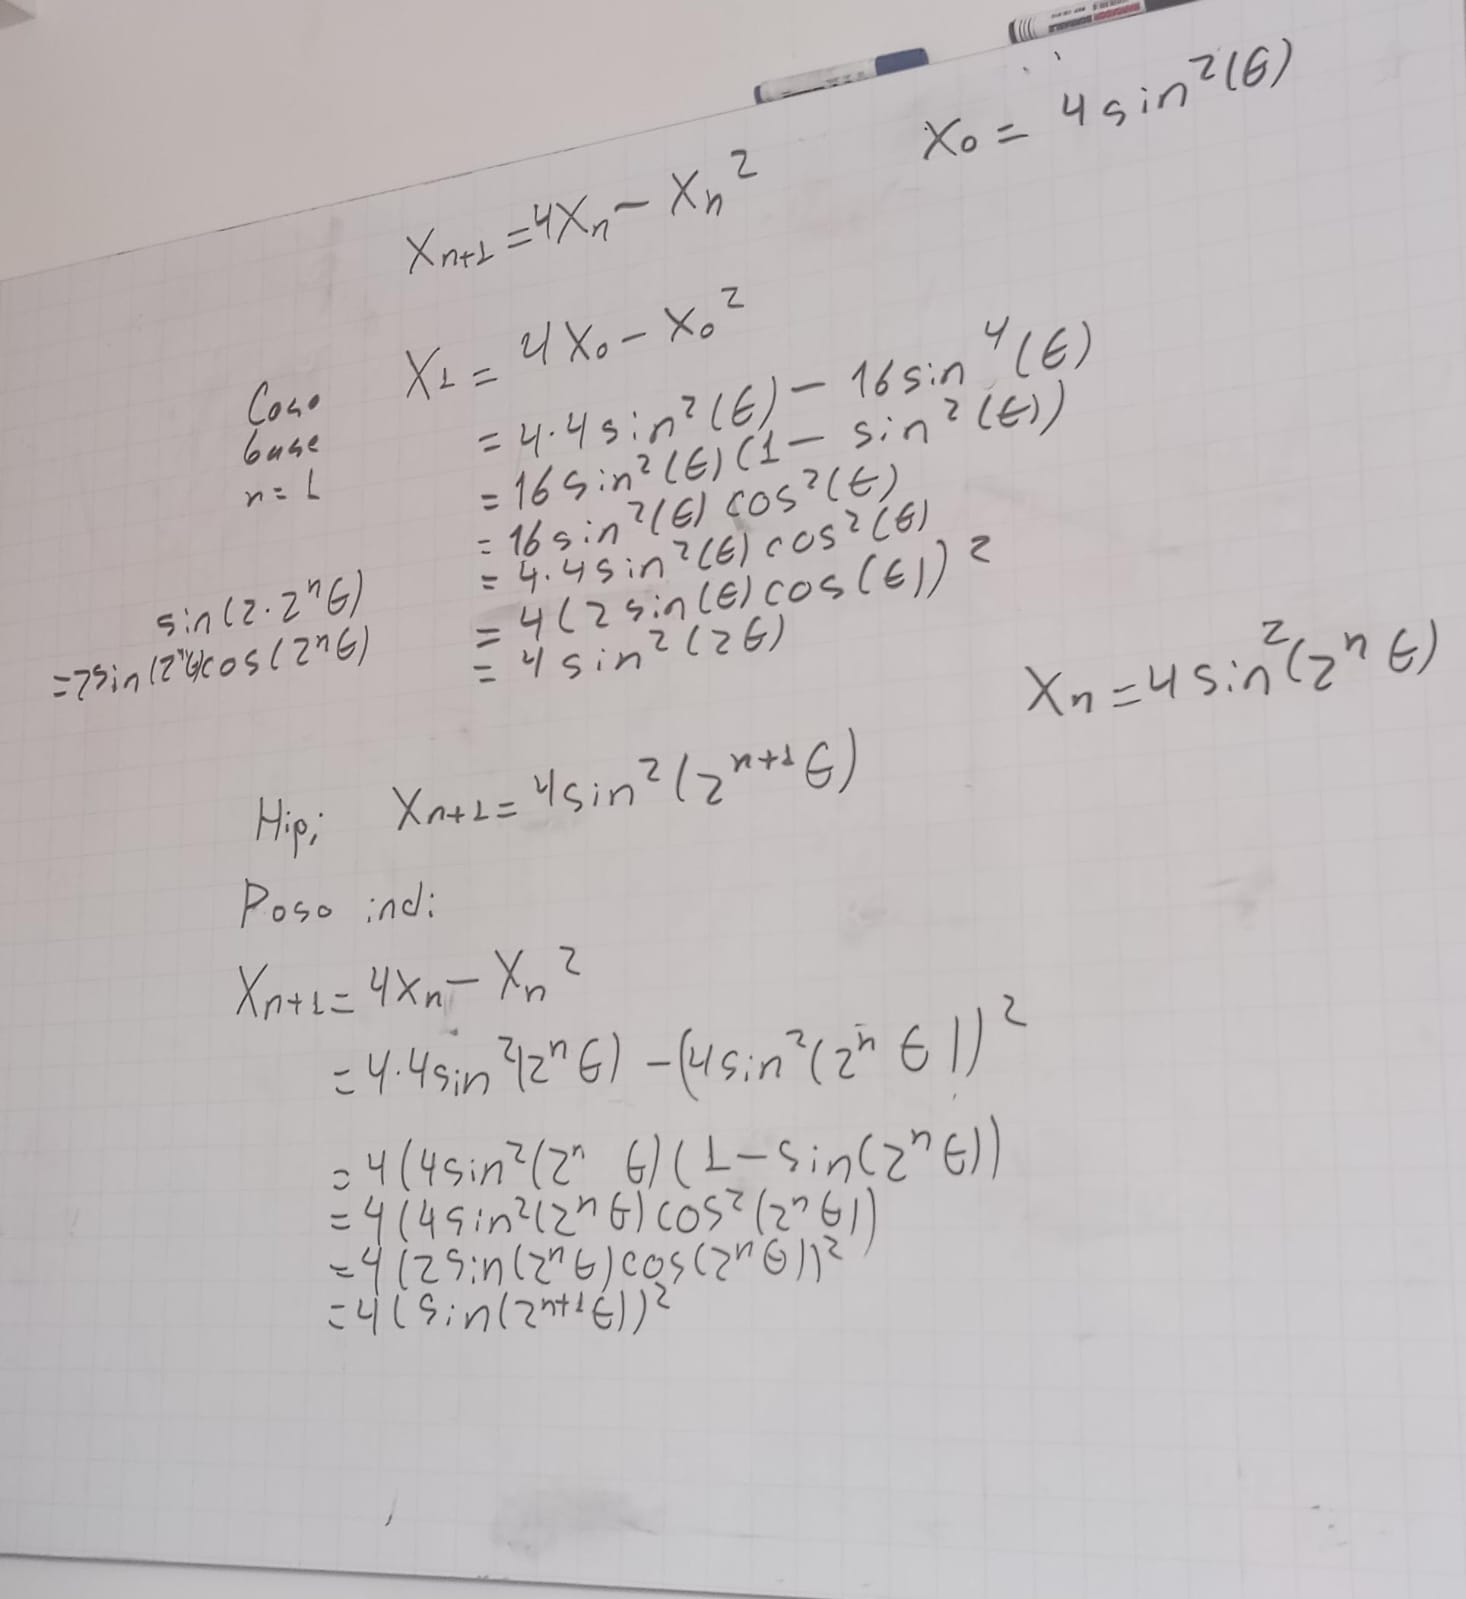 X₀ = 4 sin²(θ)
Xₙ₊₁ = 4Xₙ − Xₙ²
Caso base n = 1
X₁ = 4X₀ − X₀²
= 4·4 sin²(θ) − 16 sin⁴(θ)
= 16 sin²(θ) (1 − sin²(θ))
= 16 sin²(θ) cos²(θ)
= 4·4 sin²(θ) cos²(θ)
= 4(2 sin(θ) cos(θ))²
= 4 sin²(2θ)
sin(2·2ⁿθ)
= 2sin(2ⁿθ)cos(2ⁿθ)
Xₙ = 4 sin²(2ⁿ θ)
Hip; Xₙ₊₁ = 4 sin²(2ⁿ⁺¹θ)
Paso ind:
Xₙ₊₁ = 4Xₙ − Xₙ²
= 4·4sin²(2ⁿθ) − (4 sin²(2ⁿ θ))²
= 4(4sin²(2ⁿ θ)(1 − sin(2ⁿθ))
= 4(4sin²(2ⁿθ)cos²(2ⁿθ))
= 4(2sin(2ⁿθ)cos(2ⁿθ))²
= 4(sin(2ⁿ⁺¹θ))²